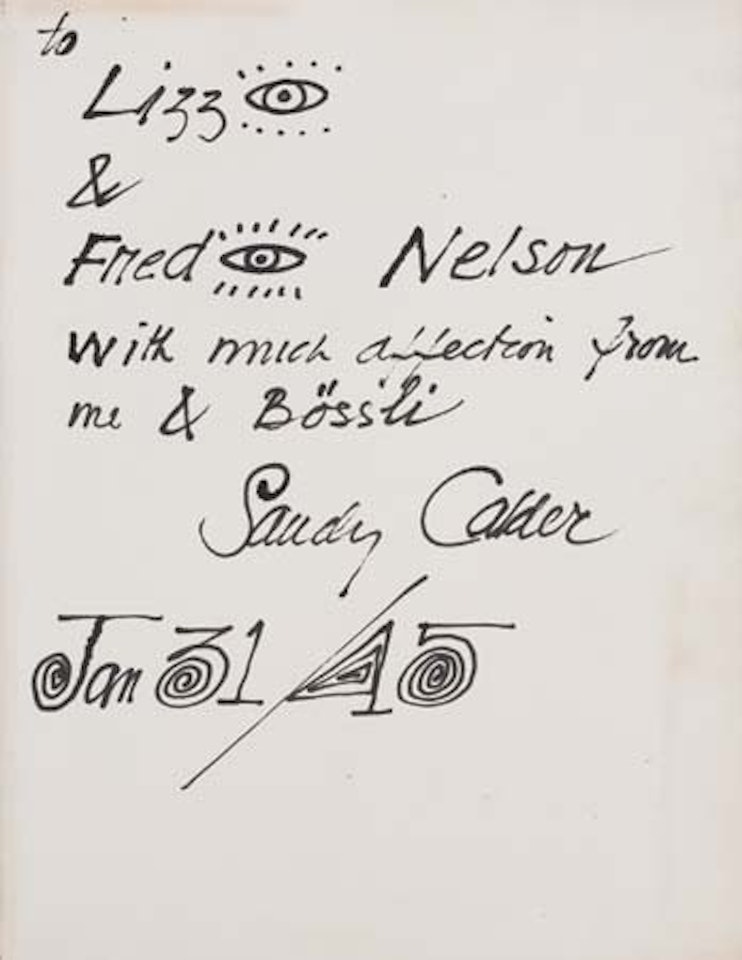 to
Lizz
&
Fred Nelson
With much affection from
me & Bössli
Sandy Calder
Jan 31/45